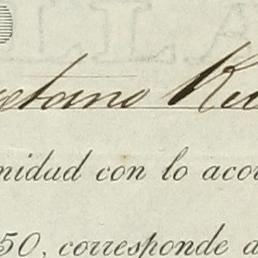 etano Ru
nidad con lo acor
50, corresponde a